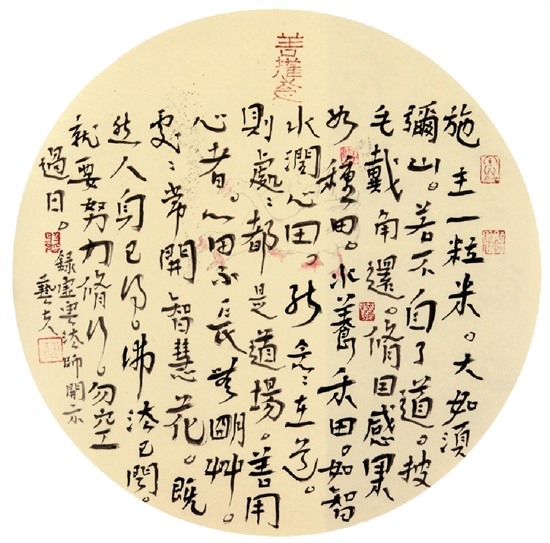 善護念
施主一粒米。大如須
彌山。若不自了道。披
毛戴角還。脩因感果
如種田。水養禾田。如智
水潤心田。能念〻在道。
則處〻都是道場。善用
心者。心田不長無明艸。
處〻常開智慧花。既
然人身已得。佛法已聞。
就要努力脩行。勿空
過日。
錄虛雲法師開示
藝夫